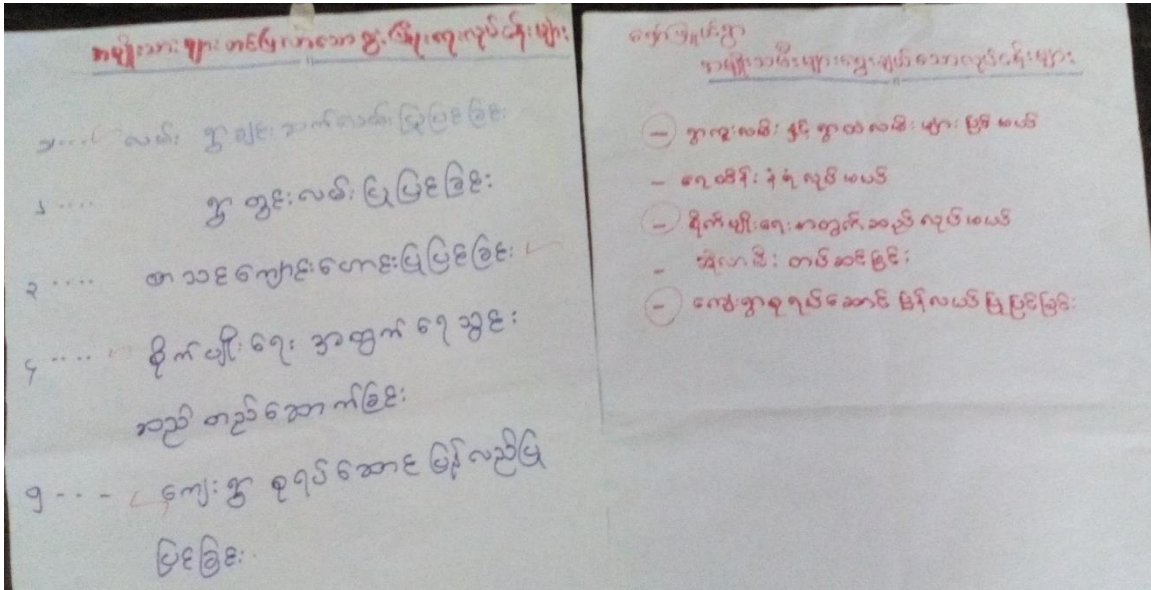 အမျိုးသားများ တင်ပြလာသော ဖွံ့ဖြိုးရေးလုပ်ငန်းများ
၁.... လမ်း ရွာချင်းဆက်လမ်း ပြုပြင်ခြင်း
၂.... ရွာတွင်းလမ်း ပြုပြင်ခြင်း
၃.... စာသင်ကျောင်းဟောင်းပြုပြင်ခြင်း
၄.... စိုက်ပျိုးရေး အတွက် ရေသွင်း
ဆည် တည်ဆောက်ခြင်း
၅.... ကျေးရွာ စုရပ်ဆောင် ပြန်လည်ပြု
ပြင်ခြင်း
အမျိုးသမီးများရွေးချယ်သောလုပ်ငန်းများ
- ရွာကူးလမ်း နှင့် ရွာထဲလမ်း များ ပြင်မယ်
- ရေထိန်းနံရံလုပ်မယ်
- စိုက်ပျိုးရေးအတွက်ဆည်လုပ်မယ်
- ဆိုလာမီး တပ်ဆင်ခြင်း
- ကျေးရွာစုရပ်ဆောင် ပြန်လယ်ပြုပြင်ခြင်း